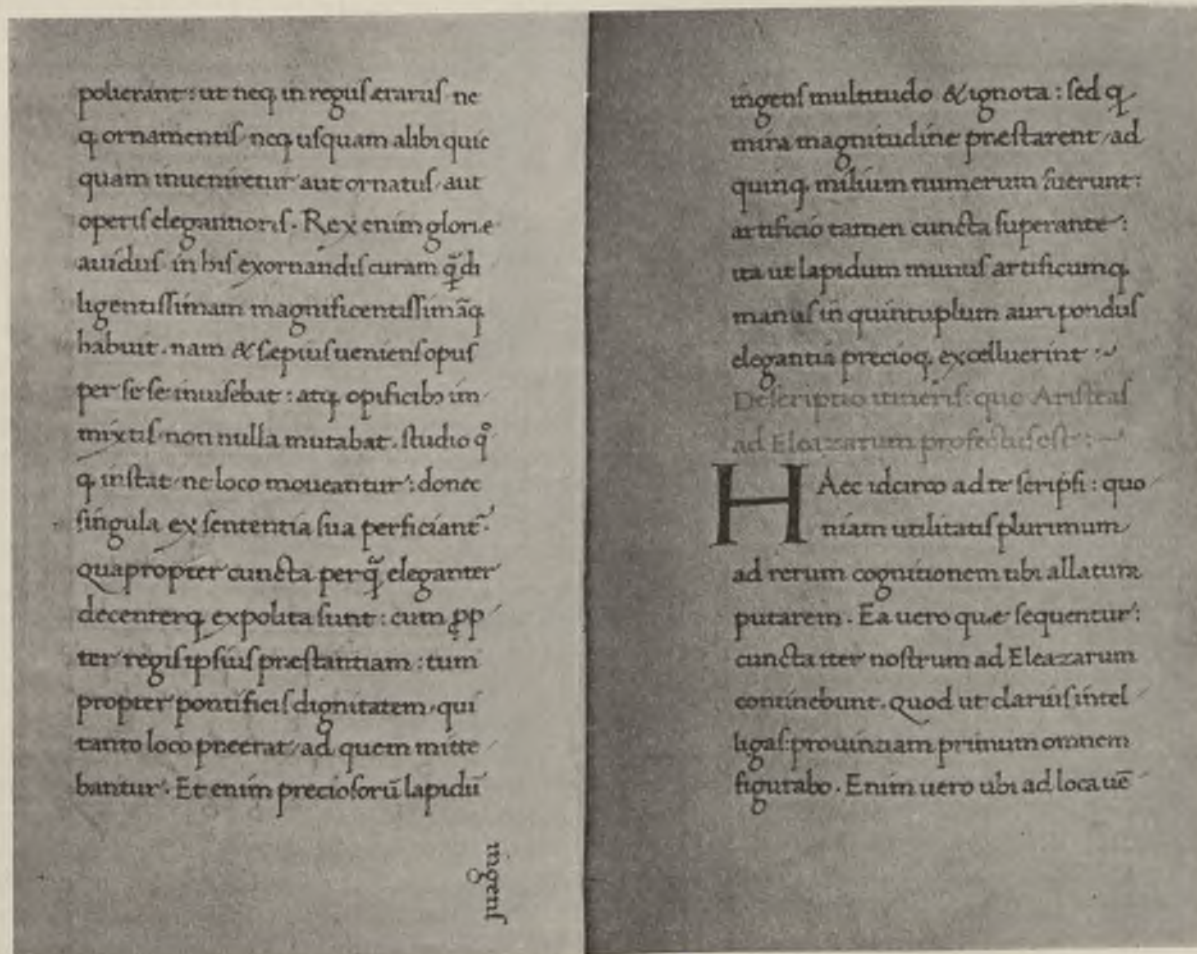 polierant : ut neq; in regiis ærariis ne
q; ornamentis neq; usquam alibi quic
quam inueniretur aut ornatus aut
operis elegantioris . Rex enim gloriæ
auidus in his exornandis curam q̃ di
ligentissimam magnificentissimãq;
habuit . nam & sæpius ueniens opus
per se se inuisebat : atq; opificibꝫ im
mixtis non nulla mutabat . studio qͦ
q; instat ne loco moueantur : donec
singula ex sententia sua perficiant̃ .
Quapropter cuncta perq̃ eleganter
decenterq; expolita sunt : cum ꝓp
ter regis ipsius præstantiam : tum
propter pontificis dignitatem , qui
tanto loco preerat , ad quem mitte
bantur . Et enim preciosorũ lapidũ
ingens
ingens multitudo & ignota : sed q;
mira magnitudine præstarent , ad
quinq; milium numerum fuerunt :
artificio tamen cuncta superante :
ita ut lapidum munus artificumq;
manus in quintuplum auri pondus
elegantia precioq; excelluerint :~
Descriptio itineris : quo Aristeas
ad Eleazarum profectus est :~
HAec idcirco ad te scripsi : quo
niam utilitatis plurimum
ad rerum cognitionem tibi allatura
putarem . Ea uero quæ sequentur :
cuncta iter nostrum ad Eleazarum
continebunt . Quod ut clarius intel
ligas : prouintiam primum omnem
figurabo . Enim uero ubi ad loca uẽ